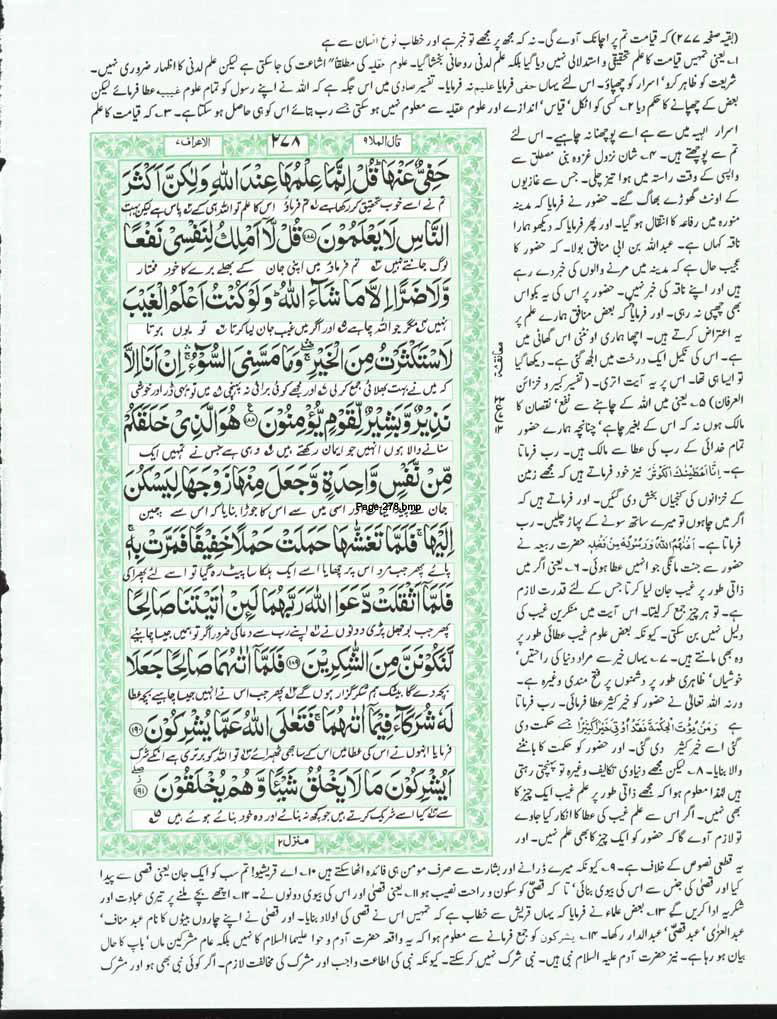 (بقیہ صفحہ ۲۷۷) کہ قیامت تم پر اچانک آوے گی۔ نہ کہ مجھ پر مجھے تو خبر ہے اور خطاب نوع انسان سے ہے
۱۔ یعنی تمہیں قیامت کا علم تحقیقی و استدلالی نہیں دیا گیا بلکہ علم لدنی روحانی بخشا گیا۔ علوم عقلیہ کی مطلقاً اشاعت کی جا سکتی ہے لیکن علم لدنی کا اظہار ضروری نہیں۔
شریعت کو ظاہر کرو' اسرار کو چھپاؤ۔ اس لئے یہاں حفی فرمایا علیم نہ فرمایا۔ تفسیر صاوی میں اس جگہ ہے کہ اللہ نے اپنے رسول کو تمام علوم غیبیہ عطا فرمائے لیکن
بعض کے چھپانے کا حکم دیا ۲۔ کسی کو اٹکل' قیاس' اندازے اور علوم عقلیہ سے معلوم نہیں ہو سکتی جسے رب بتائے اس کو ہی حاصل ہو سکتا ہے۔ ۳۔ کہ قیامت کا علم
اسرار الہیہ میں سے ہے اسے پوچھنا نہ چاہیے۔ اس لئے
تم سے پوچھتے ہیں۔ ۴۔ شان نزول غزوہ بنی مصطلق سے
واپسی کے وقت راستہ میں ہوا تیز چلی۔ جس سے غازیوں
کے اونٹ گھوڑے بھاگ گئے۔ حضور نے فرمایا کہ مدینہ
منورہ میں رفاعہ کا انتقال ہو گیا۔ اور پھر فرمایا کہ دیکھو ہمارا
ناقہ کہاں ہے۔ عبداللہ بن ابی منافق بولا۔ کہ حضور کا
عجیب حال ہے کہ مدینہ میں مرنے والوں کی خبر دے رہے
ہیں اور اپنے ناقہ کی خبر نہیں۔ حضور پر اس کی یہ بکواس
بھی چھپی نہ رہی۔ اور فرمایا کہ بعض منافق ہمارے علم پر
یہ اعتراض کرتے ہیں۔ اچھا ہماری اونٹنی اس گھاٹی میں
ہے۔ اس کی نکیل ایک درخت میں الجھ گئی ہے۔ دیکھا گیا
تو ایسا ہی تھا۔ اس پر یہ آیت اتری۔ (تفسیر کبیر و خزائن
العرفان) ۵۔ یعنی میں اللہ کے چاہنے سے نفع' نقصان کا
مالک ہوں نہ کہ اس کے بغیر چاہے' چنانچہ ہمارے حضور
تمام خدائی کے رب کی عطا سے مالک ہیں۔ رب فرماتا
ہے۔ اِنَّا اَعْطَیْنٰکَ الْکَوْثَرَ نیز خود فرماتے ہیں کہ مجھے زمین
کے خزانوں کی کنجیاں بخش دی گئیں۔ اور فرماتے ہیں کہ
اگر میں چاہوں تو میرے ساتھ سونے کے پہاڑ چلیں۔ رب
فرماتا ہے۔ اَغْنٰہُمُ اللّٰہُ وَرَسُوْلُہٗ مِنْ فَضْلِہٖ حضرت ربیعہ نے
حضور سے جنت مانگی جو انہیں عطا ہوئی۔ ۶۔ یعنی اگر میں
ذاتی طور پر غیب جان لیا کرتا جس کے لئے قدرت لازم
ہے۔ تو ہر چیز جمع کر لیتا۔ اس آیت میں منکرین غیب کی
دلیل نہیں بن سکتی۔ کیونکہ بعض علوم غیب عطائی طور پر
وہ بھی مانتے ہیں۔ ۷۔ یہاں خیر سے مراد دنیا کی راحتیں'
خوشیاں' ظاہری طور پر دشمنوں پر فتح مندی وغیرہ ہے۔
ورنہ اللہ تعالیٰ نے حضور کو خیر کثیر عطا فرمائی۔ رب فرماتا
ہے وَمَنْ یُّؤْتَ الْحِکْمَۃَ فَقَدْ اُوْتِیَ خَیْرًا کَثِیْرًا جسے حکمت دی
گئی اسے خیر کثیر دی گئی۔ اور حضور کو حکمت کا بانٹنے
والا بنایا۔ ۸۔ لیکن مجھے دنیاوی تکالیف وغیرہ تو پہنچتی رہتی
ہیں لہٰذا معلوم ہوا کہ مجھے ذاتی طور پر علم غیب ایک چیز کا
بھی نہیں۔ اگر اس سے علم غیب عطا کا انکار کیا جاوے
تو لازم آوے گا کہ حضور کو ایک چیز کا بھی علم نہیں۔ اور
معانقۃ
قال الملا۹
۲۷۸
الاعراف۷
حَفِیٌّ عَنْہَا ؕ قُلْ اِنَّمَا عِلْمُہَا عِنْدَ اللّٰہِ وَلٰکِنَّ اَکْثَرَ
تم نے اسے خوب تحقیق کر رکھا ہے تم فرماؤ اس کا علم تو اللہ ہی کے پاس ہے لیکن بہت
النَّاسِ لَا یَعْلَمُوْنَ ﴿۱۸۷﴾ قُلْ لَّاۤ اَمْلِکُ لِنَفْسِیْ نَفْعًا
لوگ جانتے نہیں تم فرماؤ میں اپنی جان کے بھلے برے کا خود مختار
وَّلَا ضَرًّا اِلَّا مَا شَآءَ اللّٰہُ ؕ وَلَوْ کُنْتُ اَعْلَمُ الْغَیْبَ
نہیں مگر جو اللہ چاہے اور اگر میں غیب جان لیا کرتا تو یوں ہوتا
لَاسْتَکْثَرْتُ مِنَ الْخَیْرِ ۚ وَمَا مَسَّنِیَ السُّوْٓءُ ۚ اِنْ اَنَا اِلَّا
کہ میں نے بہت بھلائی جمع کر لی اور مجھے کوئی برائی نہ پہنچی میں تو یہی ڈر اور خوشی
نَذِیْرٌ وَّبَشِیْرٌ لِّقَوْمٍ یُّؤْمِنُوْنَ ﴿۱۸۸﴾ ہُوَ الَّذِیْ خَلَقَکُمْ
سنانے والا ہوں انہیں جو ایمان رکھتے ہیں وہی ہے جس نے تمہیں ایک
مِّنْ نَّفْسٍ وَّاحِدَۃٍ وَّجَعَلَ مِنْہَا زَوْجَہَا لِیَسْکُنَ
جان سے پیدا کیا اور اسی میں سے اس کا جوڑا بنایا کہ اس سے چین
Page-278.bmp
اِلَیْہَا ۚ فَلَمَّا تَغَشّٰىہَا حَمَلَتْ حَمْلًا خَفِیْفًا فَمَرَّتْ بِہٖ ۚ
پائے پھر جب مرد اس پر چھایا اسے ایک ہلکا سا پیٹ رہ گیا تو اسے لئے پھرا کی
فَلَمَّاۤ اَثْقَلَتْ دَّعَوَا اللّٰہَ رَبَّہُمَا لَئِنْ اٰتَیْتَنَا صَالِحًا
پھر جب بوجھل پڑی دونوں نے اپنے رب سے دعا کی ضرور اگر تو ہمیں جیسا چاہیے
لَّنَکُوْنَنَّ مِنَ الشّٰکِرِیْنَ ﴿۱۸۹﴾ فَلَمَّاۤ اٰتٰىہُمَا صَالِحًا جَعَلَا
بچہ دے گا بیشک ہم شکر گزار ہوں گے پھر جب اس نے انہیں جیسا چاہیے بچہ عطا
لَہٗ شُرَکَآءَ فِیْمَاۤ اٰتٰىہُمَا ۚ فَتَعٰلَی اللّٰہُ عَمَّا یُشْرِکُوْنَ ﴿۱۹۰﴾
فرمایا انہوں نے اس کی عطا میں اس کے ساجھی ٹھہرائے تو اللہ کو برتری ہے انکے شرک
اَیُشْرِکُوْنَ مَا لَا یَخْلُقُ شَیْـًٔا وَّہُمْ یُخْلَقُوْنَ ﴿۱۹۱﴾
سے کیا اسے شریک کرتے ہیں جو کچھ نہ بنائے اور وہ خود بنائے ہوئے ہیں
منزل۲
یہ قطعی نصوص کے خلاف ہے۔ ۹۔ کیونکہ میرے ڈرانے اور بشارت سے صرف مومن ہی فائدہ اٹھا سکتے ہیں ۱۰۔ اے قریشیو! تم سب کو ایک جان یعنی قصی سے پیدا
کیا اور قصی کی جنس سے اس کی بیوی بنائی' تا کہ قصی کو سکون و راحت نصیب ہو ۱۱۔ یعنی قصی اور اس کی بیوی دونوں نے۔ ۱۲۔ اچھے بچے ملنے پر تیری عبادت اور
شکریہ ادا کریں گے ۱۳۔ بعض علماء نے فرمایا کہ یہاں قریش سے خطاب ہے کہ تمہیں اس نے قصی کی اولاد بنایا۔ اور قصی نے اپنے چاروں بیٹوں کا نام عبد مناف'
عبدالعزی' عبد قصی' عبدالدار رکھا۔ ۱۴۔ یشرکون کو جمع فرمانے سے معلوم ہوا کہ یہ واقعہ حضرت آدم و حوا علیہما السلام کا نہیں بلکہ عام مشرکین ماں' باپ کا حال
بیان ہو رہا ہے۔ نیز حضرت آدم علیہ السلام نبی ہیں۔ نبی شرک نہیں کر سکتے۔ کیونکہ نبی کی اطاعت واجب اور مشرک کی مخالفت لازم۔ اگر کوئی نبی بھی ہو اور مشرک